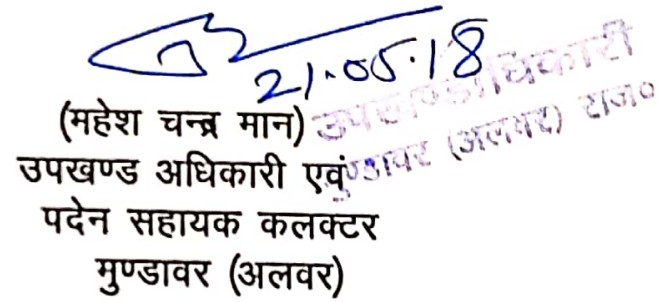 21.05.18
उपखण्ड अधिकारी
मुण्डावर (अलवर) राज०
(महेश चन्द्र मान)
उपखण्ड अधिकारी एवं
पदेन सहायक कलक्टर
मुण्डावर (अलवर)